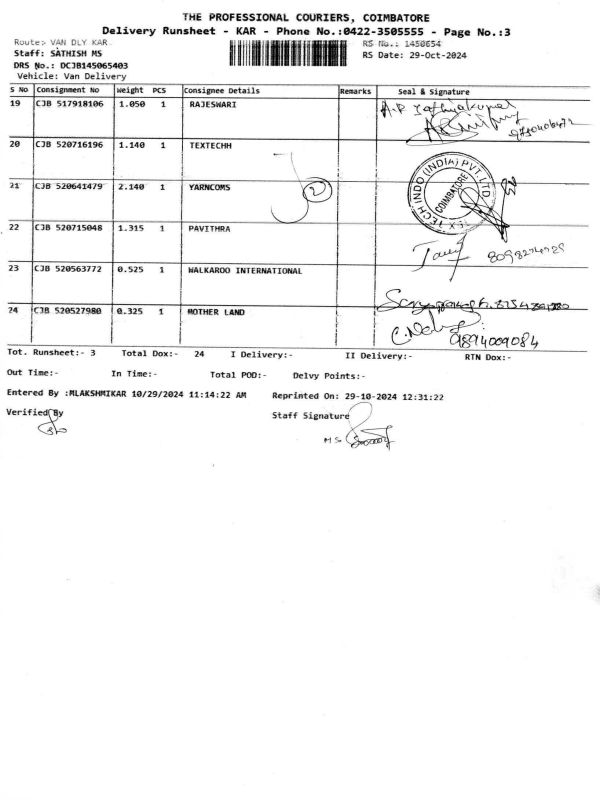 THE PROFESSIONAL COURIERS, COIMBATORE
Delivery Runsheet - KAR - Phone No.:0422-3505555 - Page No.:3
Route:- VAN DLY KAR RS No.: 1450654
Staff: SATHISH MS RS Date: 29-Oct-2024
DRS No.: DCJB145065403
Vehicle: Van Delivery
S No Consignment No Weight PCS Consignee Details Remarks Seal & Signature
19 CJB 517918106 1.050 1 RAJESWARI
20 CJB 520716196 1.140 1 TEXTECHH
TEX TECH INDO (INDIA) PVT. LTD. COIMBATORE
21 CJB 520641479 2.140 1 YARNCOMS 2
22 CJB 520715048 1.315 1 PAVITHRA
23 CJB 520563772 0.525 1 WALKAROO INTERNATIONAL
24 CJB 520527980 0.325 1 MOTHER LAND 9894009084
Tot. Runsheet:- 3 Total Dox:- 24 I Delivery:- II Delivery:- RTN Dox:-
Out Time:- In Time:- Total POD:- Delvy Points:-
Entered By :MLAKSHMIKAR 10/29/2024 11:14:22 AM Reprinted On: 29-10-2024 12:31:22
Verified By Staff Signature
MS